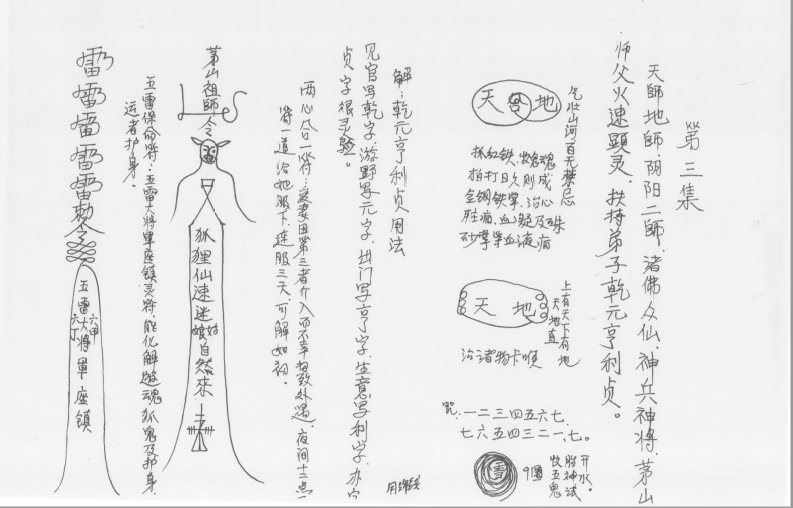 第三集
天師地師．阴阳二師．诸佛众仙．神兵神将．茅山
师父火速顕灵．扶持弟子乾元亨利贞。
气壮山河百无禁忌
天 地
抓红铁．
拍打日久则成
金钢铁掌．治心
胜病．血 及殊
砂掌掌血液病
上有天下有地
天地直
天 地
治诸物卡喉
咒：一二三四五六七．
七六五四三二一．七。
雪
9圈
开水。
收五鬼
解：乾元亨利贞用法
见官写乾字．游野写元字．出门写亨字．生意写利字．办
贞字很灵验。
两心合一符：爱妻因第三者介入而不幸 致外遇．夜间十二点
符一道给她服下．连服三天．可解如初。
茅山祖師令
狐狸仙速迷姑娘自然來
五雷保命符：五雷大将軍座镇灵符．能化解遊魂狐鬼及护身．
运者护身．
雷雷雷雷雷勅令
五雷大将軍座镇
六甲
六丁